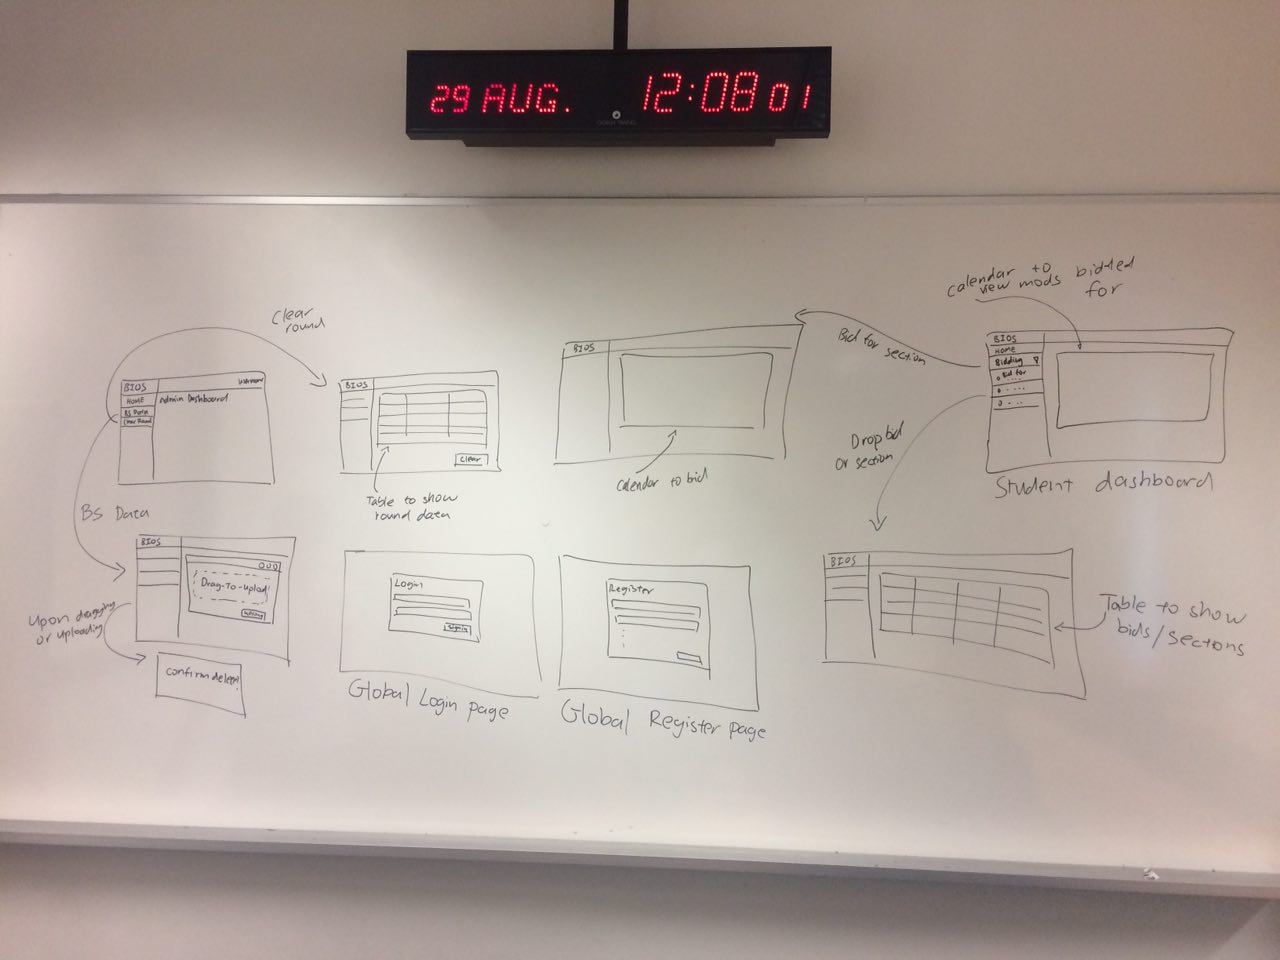 29 AUG. 12:08 01
Clear
round
BIOS
Username
HOME
Admin Dashboard
BS Data
Clear Round
BIOS
Clear
Table to show
round data
BIOS
Calendar to bid
Bid for section
Calendar to
view mods bidded
for
BIOS
HOME
Bidding
Bid for
Student dashboard
Drop bid
or section
BS Data
BIOS
Drag-To-Upload
Upon dragging
or uploading
Login
Sign in
Global Login page
Register
Global Register page
BIOS
Table to show
bids/sections